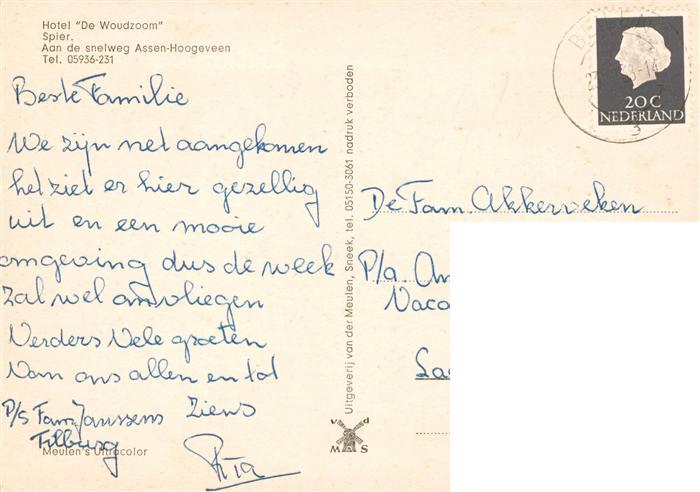 Hotel "De Woudzoom"
Spier.
Aan de snelweg Assen-Hoogeveen
Tel. 05936-231
Beste Familie
We zijn net aangekomen
het ziet er hier gezellig
uit en een mooie
omgeving dus de week
zal wel omvliegen
Verders Vele groeten
Van ons allen en tot
Ziens
P/s Fam. Janssens
Tilburg
Rita
Meulen's Ultracolor
Uitgeverij van der Meulen, Sneek, tel. 05150-3061 nadruk verboden
v d
M S
20 C
NEDERLAND
De Fam. Akkerveken
P/a.